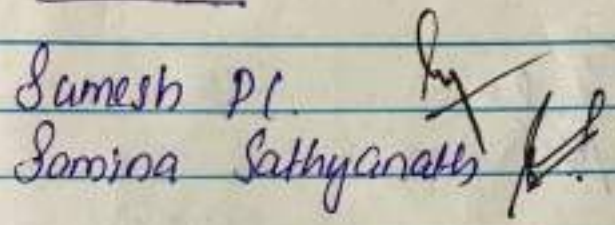 Sumesh P.C.
Samina Sathyanath